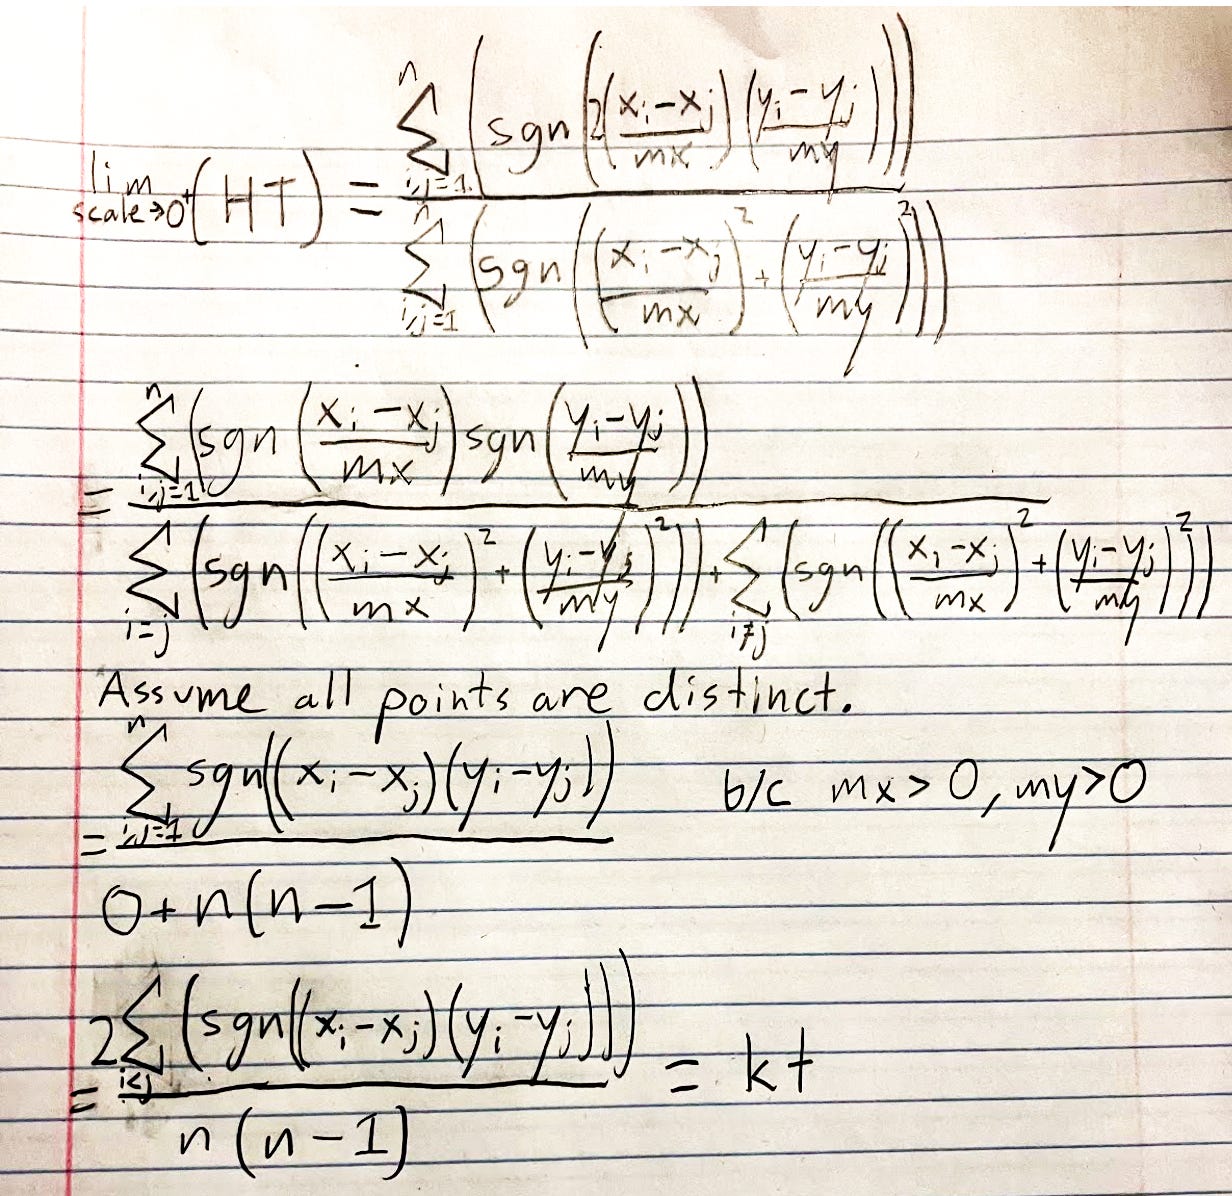 lim_{scale→0⁺}(HT) = \frac{\sum_{i,j=1}^{n}\left(sgn\left(2\left(\frac{x_i-x_j}{mx}\right)\left(\frac{y_i-y_j}{my}\right)\right)\right)}{\sum_{i,j=1}^{n}\left(sgn\left(\left(\frac{x_i-x_j}{mx}\right)^2+\left(\frac{y_i-y_j}{my}\right)^2\right)\right)}
= \frac{\sum_{i,j=1}^{n}\left(sgn\left(\frac{x_i-x_j}{mx}\right)sgn\left(\frac{y_i-y_j}{my}\right)\right)}{\sum_{i=j}\left(sgn\left(\left(\frac{x_i-x_j}{mx}\right)^2+\left(\frac{y_i-y_j}{my}\right)^2\right)\right)+\sum_{i≠j}\left(sgn\left(\left(\frac{x_i-x_j}{mx}\right)^2+\left(\frac{y_i-y_j}{my}\right)^2\right)\right)}
Assume all points are distinct.
= \frac{\sum_{i,j=1}^{n}sgn((x_i-x_j)(y_i-y_j))}{0+n(n-1)} b/c mx>0, my>0
= \frac{2\sum_{i<j}(sgn((x_i-x_j)(y_i-y_j)))}{n(n-1)} = kt